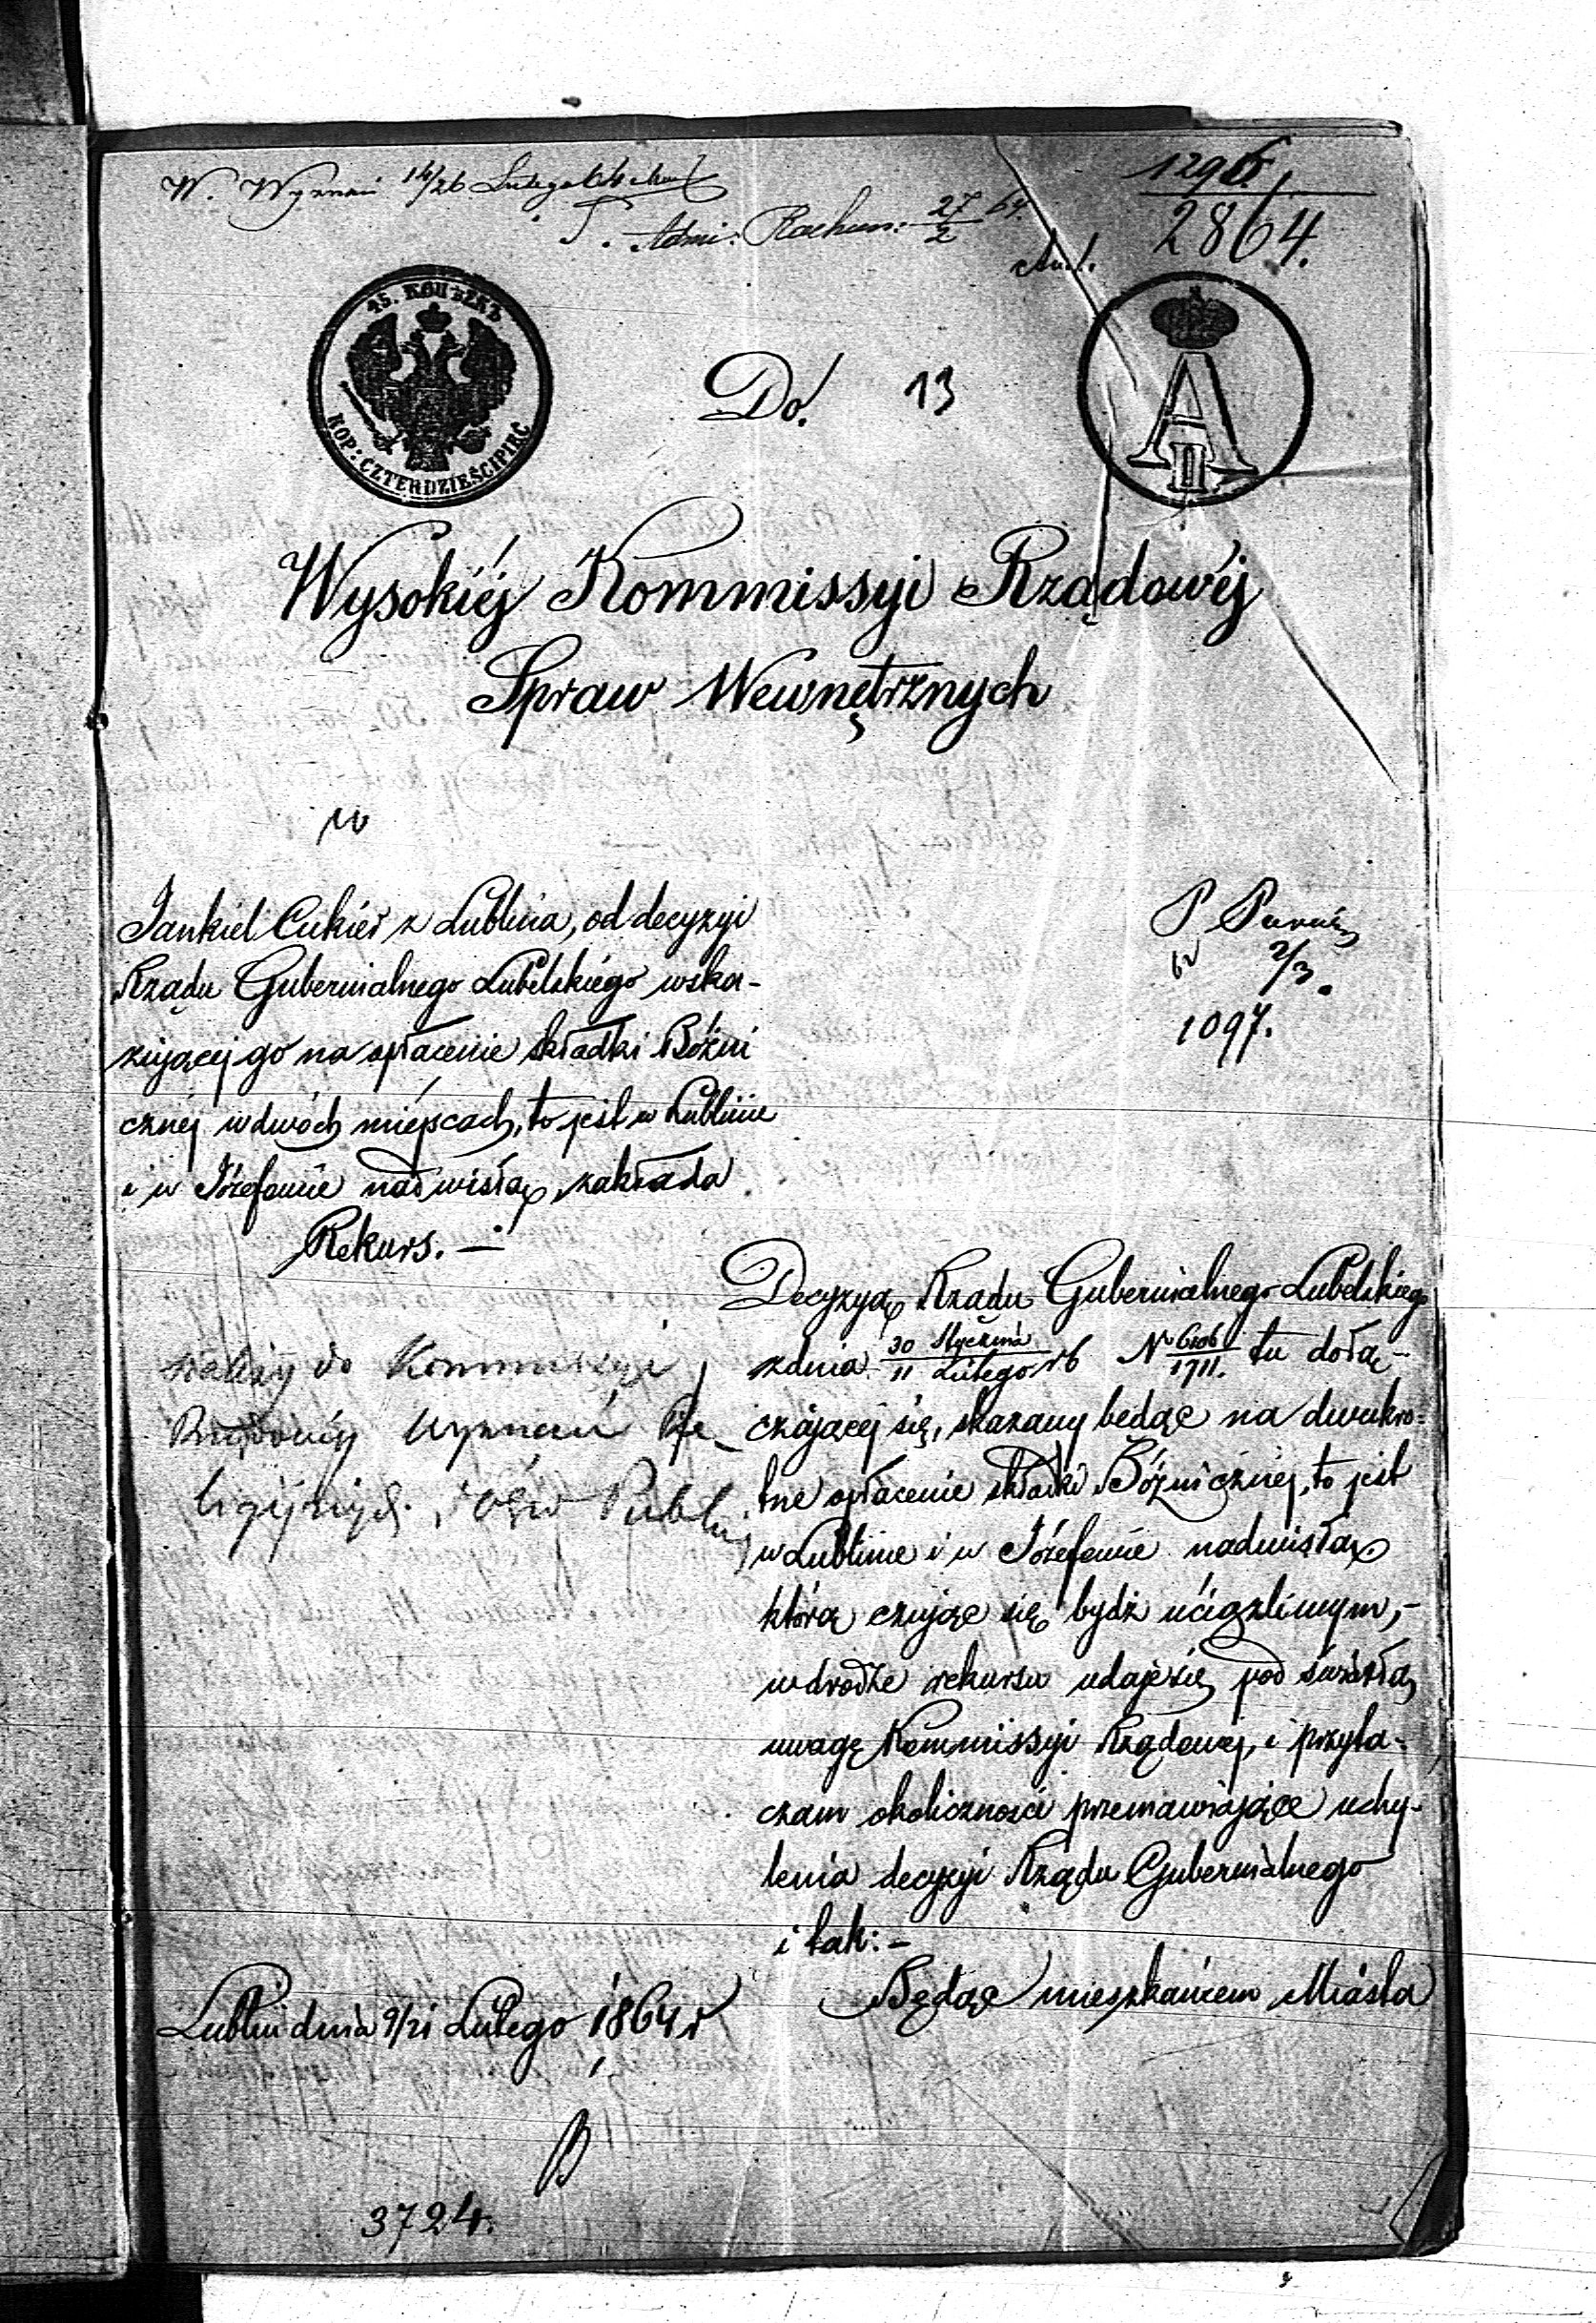 W. Wyznań 14/26 Lutego 64
Admi: Rachun: 27/2 64
1296
2864.
45. КОПѢЕКЪ
KOP: CZTERDZIEŚCIPIĘĆ
A II
Do. 13
Wysokiéj Kommissyi Rządowéj
Spraw Wewnętrznych
Jankiel Cukier z Lublina, od decyzyi
Rządu Gubernialnego Lubelskiego wska-
zującej go na opłacenie składki Bóżni
cznéj w dwóch miéjscach, to jest w Lublinie
i w Józefowie nad wisłą, zakłada
Rekurs. —
P
2/3.
1097.
należy do Kommissyi
Rządowéj Wyznań Re-
ligijnych i Ośw Publ
Decyzyą Rządu Gubernialnego Lubelskiego
z dnia 30 Stycznia / 11 Lutego rb N 6106/1711. tu dołą-
czającej się, skazany będąc na dwukro-
tne opłacenie składki Bóżnicznéj, to jest
w Lublinie i w Józefowie nadwisłą
którą czując się bydź uciążliwym, -
w drodze rekursu udaje się pod światłą
uwagę Kommissyi Rządowej, i przyta-
czam okoliczności przemawiające uchy-
lenia decyzyi Rządu Gubernialnego
i tak: -
Będąc mieszkańcem Miasta
Lublin dnia 9/21 Lutego 1864 r
3724.